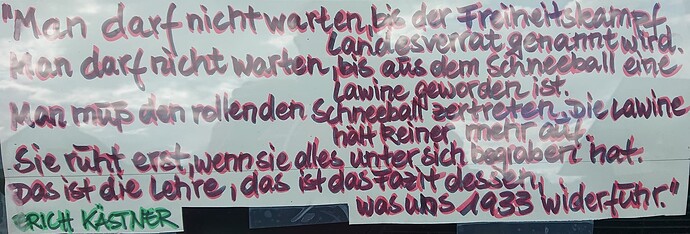 "Man darf nicht warten, bis der Freiheitskampf
Landesverrat genannt wird.
Man darf nicht warten, bis aus dem Schneeball eine
Lawine geworden ist.
Man muß den rollenden Schneeball zertreten. Die Lawine
hält Keiner mehr auf.
Sie ruht erst, wenn sie alles unter sich begraben hat.
Das ist die Lehre, das ist das Fazit dessen,
was uns 1933 widerfuhr."
ERICH KÄSTNER